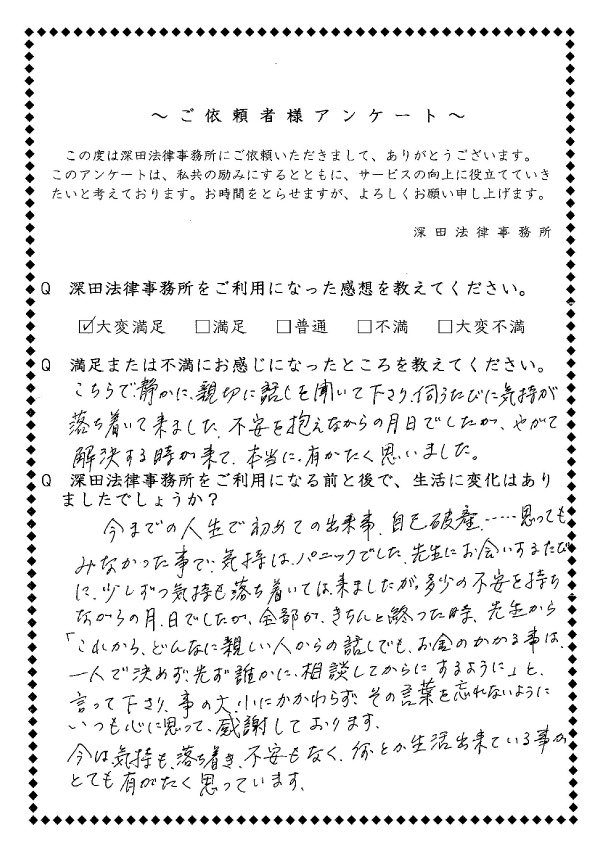 ～ご依頼者様アンケート～
この度は深田法律事務所にご依頼いただきまして、ありがとうございます。
このアンケートは、私共の励みにするとともに、サービスの向上に役立てていき
たいと考えております。お時間をとらせますが、よろしくお願い申し上げます。
深田法律事務所
Q 深田法律事務所をご利用になった感想を教えてください。
☑大変満足 □満足 □普通 □不満 □大変不満
Q 満足または不満にお感じになったところを教えてください。
こちらで静かに、親切に話しを聞いて下さり、伺うたびに気持が
落ち着いて来ました。不安を抱えながらの月日でしたが、やがて
解決する時が来て、本当に、有かたく思いました。
Q 深田法律事務所をご利用になる前と後で、生活に変化はあり
ましたでしょうか？
今までの人生で初めての出来事、自己破産……思っても
みなかった事で、気持は、パニックでした。先生にお会いするたび
に、少しずつ気持も落ち着いては来ましたが、多少の不安を持ち
ながらの月日でしたが、全部が、きちんと終った時、先生から
「これから、どんなに親しい人からの話しでも、お金のかかる事は、
一人で決めず、先ず誰かに、相談してからにするように」と、
言って下さり、事の大、小にかかわらず、その言葉を忘れないように
いつも心に思って、感謝しております。
今は気持も、落ち着き、不安もなく、何とか生活出来ている事が
とても有がたく思っています。